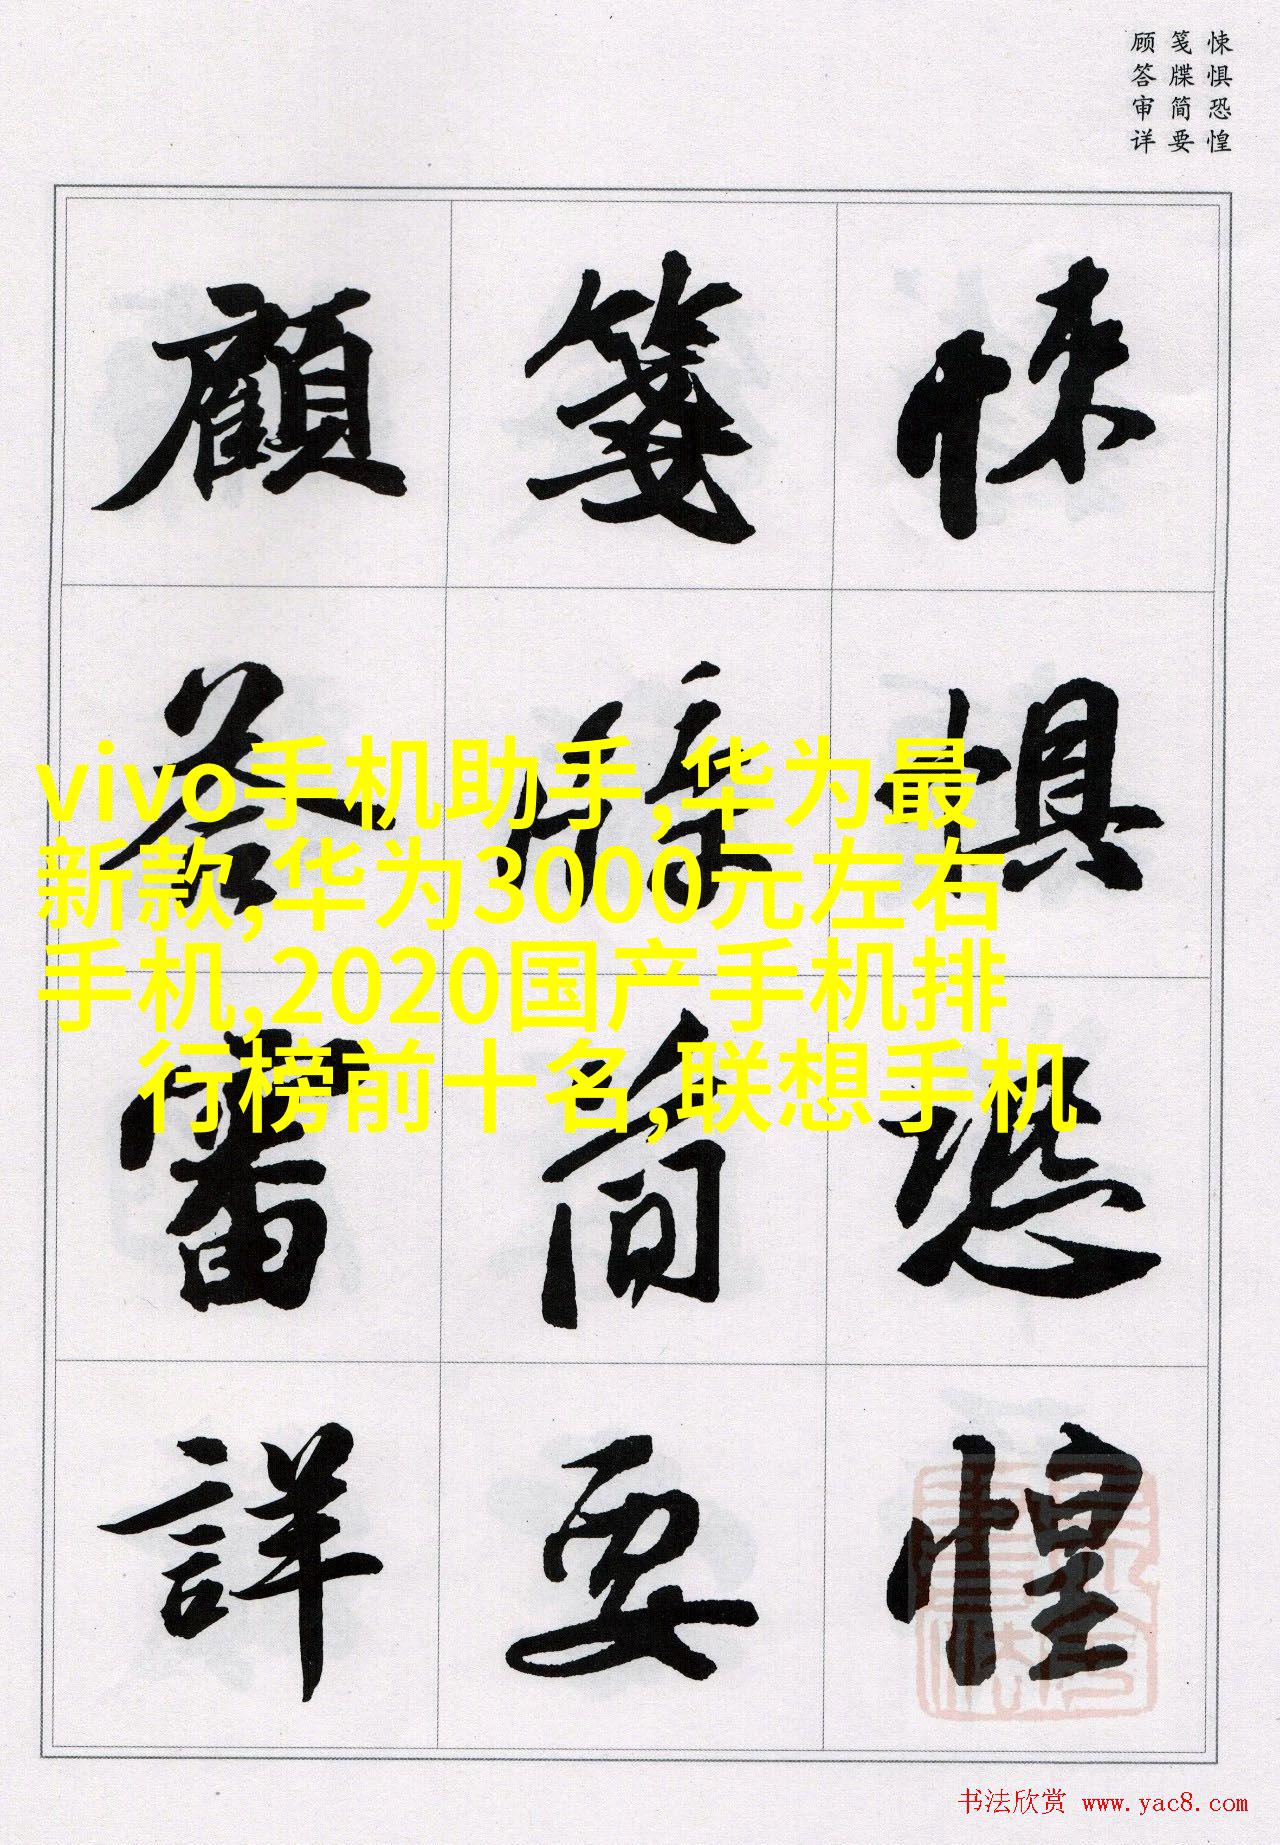 悚惧恐惶
笺牒简要
顾答审详
悚惧恐惶
箋牒简要
顧答審詳
vivo手机助手,华为最
新款,华为3000元左右
手机,2020国产手机排
行榜前十名,联想手机
书法欣赏 www.yac8.com